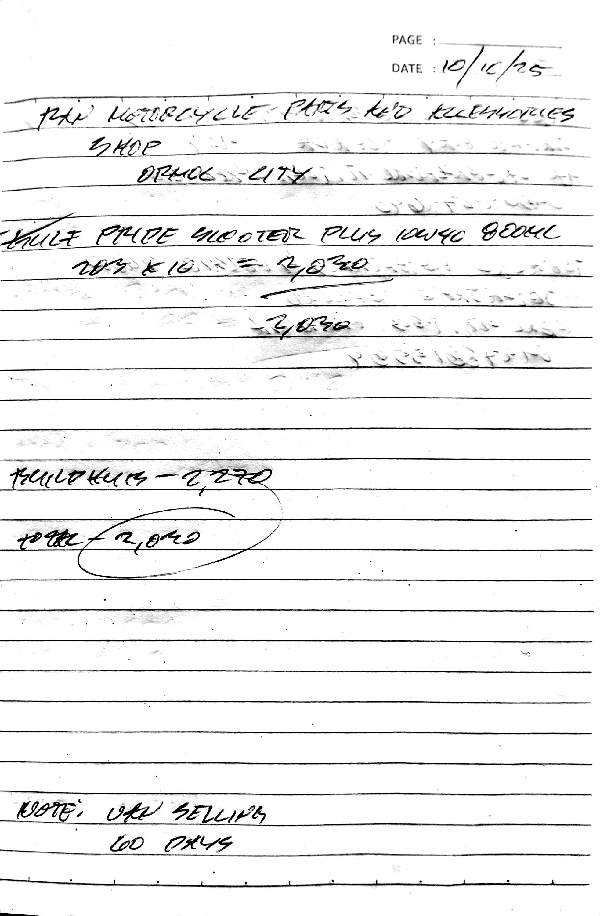 PAGE :
DATE : 10/10/25
RAN MOTORCYCLE PARTS AND ACCESSORIES
SHOP
ORMOC CITY
PRIDE SCOOTER PLUS 10W40 800ML
203 X 10 = 2,030
2,030
- 2,270
TOTAL - 2,030
NOTE: VAN SELLING
60 DAYS